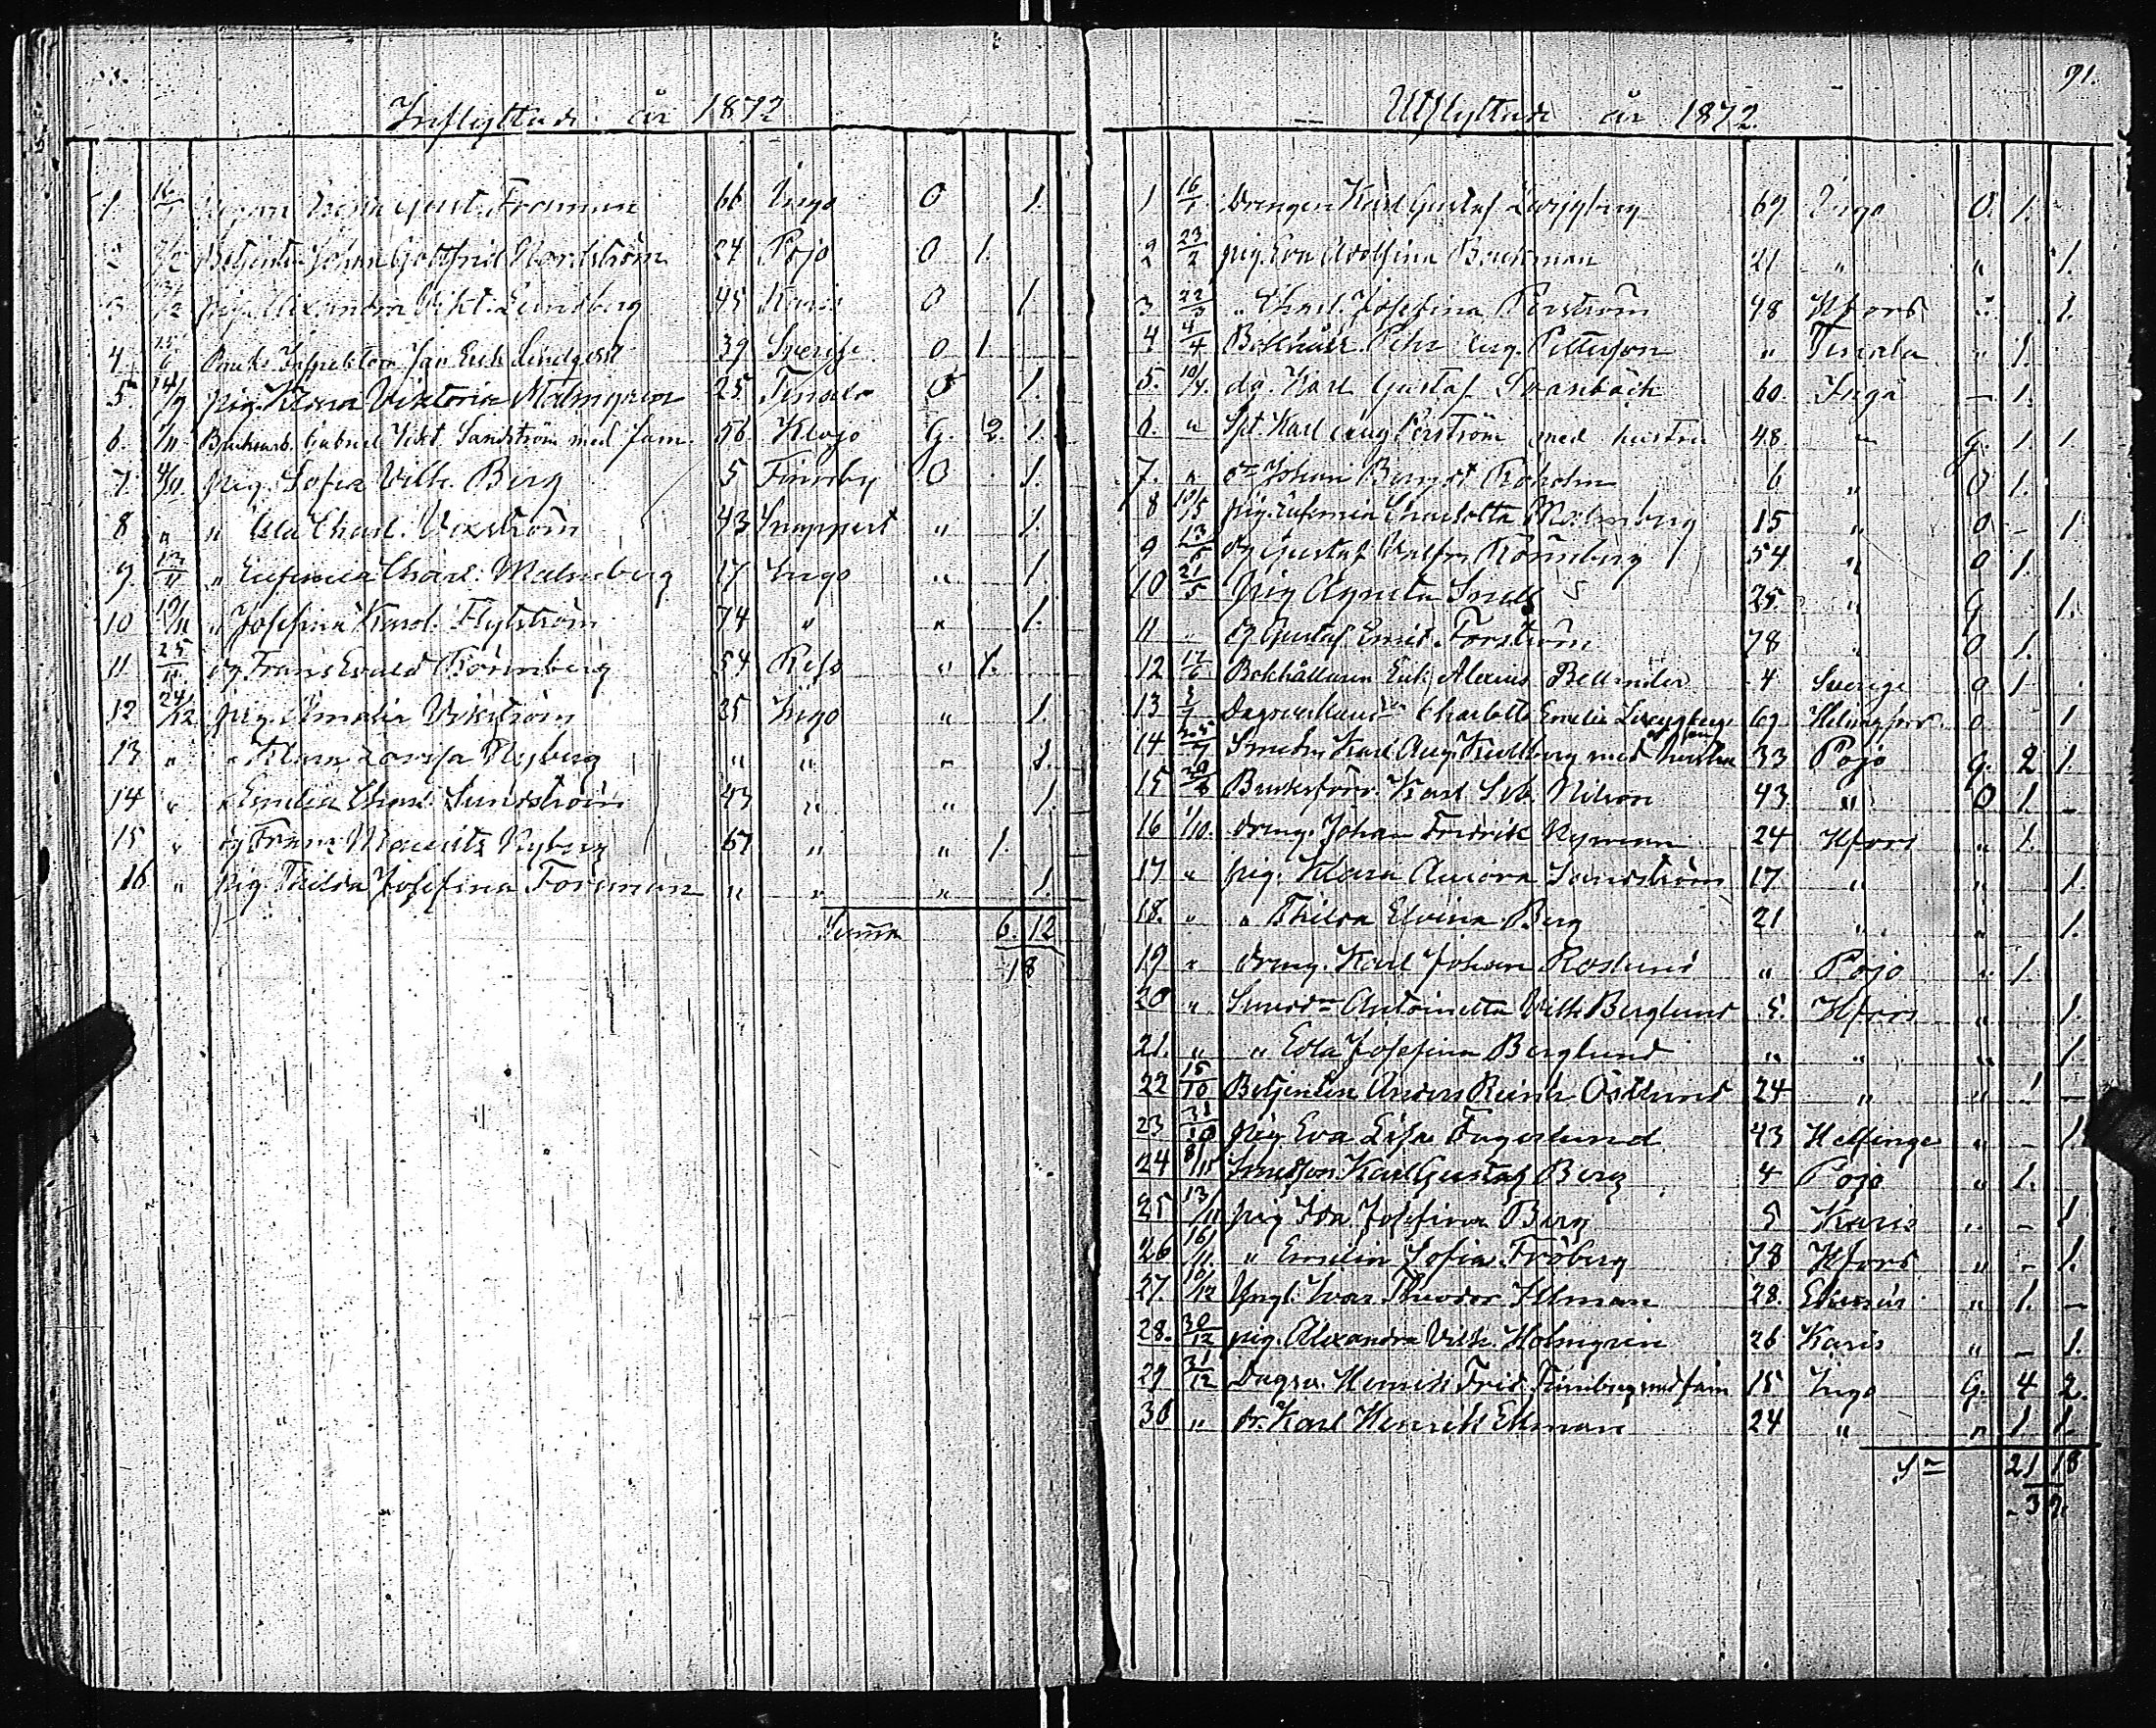 Inflyttade år 1872
1 16/1 pigan Gust. Froman 66 Ingo O 1.
2 Betjenten Johan Gottfrid Nordström 24 Pojo O 1.
3 pig. Alexandra Vikt. Lundberg 45 Karis O 1
4 15/6 Bruks Inspektor Jan Erik Lindqvist 39 Sverige O 1
5 14/9 pig. Klara Viktoria Malmgren 25 Tenala O 1.
6. 1/11 Gabriel Vikt. Sandström med fam. 56 Kivjo G. 2. 1.
7 4/11 pig. Sofia Vilh. Berg 5 Finnby O 1.
8 " " Ida Charl. Vexström 43 Snappert " 1.
9. 12/11 " Eufemia Charl. Malmberg 17 Ingo " 1.
10 19/11 " Josefina Karol. Flytström 74 " " 1.
11 25/11 dg Frans Evald Rönnberg 54 Kisko " 1.
12 24/12 pig. Amalia Vikström 25 Ingo " 1.
13. " " Klara Lovisa Nyberg " " " 1.
14 " " Emelia Charl. Sundström 43 " " 1.
15 " dg Frans Mauritz Nyberg 67 " " 1.
16 " pig Thilda Josefina Forsman " " " 1.
Summa 6. 12
18
91.
Utflyttade år 1872
1 16/1 Drengen Karl Gustaf Ljungberg 69 Ingo O. 1.
2 23/2 pig. Eva Adolfina Backman 21 " " 1.
3 22/3 " Charl. Josefina Perström 48 Hfors " 1.
4 4/4 Bokhåll. Pehr Aug. Petterson " Tenala " 1.
5. 10/4 dg. Karl Gustaf Svanbäck 60. Ingå – 1.
6. " Spt Karl Aug Perström med hustru 48 " g. 1. 1
7. " Johan Bengt Roholm 6 " O 1.
8 10/5 pig. Eufemia Charlotta Malmberg 15 " O – 1
9 13/5 dg Gustaf Rönnberg 54 " O 1.
10 21/5 pig Agneta Snell 25. " G 1.
11 " dg Gustaf Emil Forström 78 " O 1.
12 17/6 Bokhållaren Erik Alexius Bellander 4 Sverige O 1
13 3/7 Charlotta Emelia Ljungberg 69 Helsingfors O 1
14 Smeden Karl Aug. Kullberg med hustru 33 Pojo g. 2 1.
15 Bruksförv. Karl Seb. Nilson 43 " O 1. –
16 1/10. dreng. Johan Fredrik Nyman 24 Hfors " 1.
17 " pig. Klara Aurora Sandström 17 " " 1.
18. " " Thilda Elvira Berg 21 " " 1.
19 " dreng. Karl Johan Roslund " Pojo " 1.
20 " Antoinetta Vilh Berglund 5. Hfors " 1.
21. " " Edla Josefina Berglund " " " 1.
22 15/10 Betjenten Anders Reinh. Östlund 24 " " 1 –
23 31/10 pig Eva Lisa Fagerlund 43 Helsinge " – 1.
24 8/11 Smedson Karl Gustaf Berg 4 Pojo " 1.
25 13/11 pig Ida Josefina Berg 5 Karis " – 1
26 16/11. " Emelia Sofia Fröberg 78 Hfors " – 1.
27. 10/12 Yngl. Ivar Theodor Illman 28. Ekenäs " 1. –
28. 30/12 pig. Alexandra Vilh. Holmgren 26 Karis " – 1.
29 31/12 Dagsv. Henrik Frid. med fam 15 Ingo G. 4 2.
30 " dr. Karl Henrik Ekman 24 " " 1 1.
Sa 21 18
39.